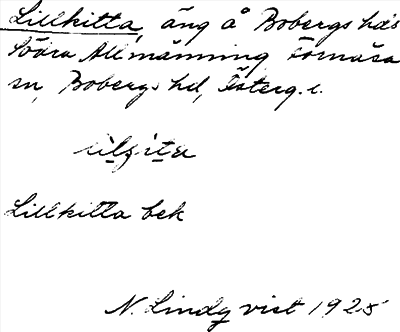 Lillkitta, äng å Bobergs hds
Södra Allmänning Fornåsa
sn, Bobergs hd, Österg. l.
Lillkitta bek
N. Lindqvist 1925